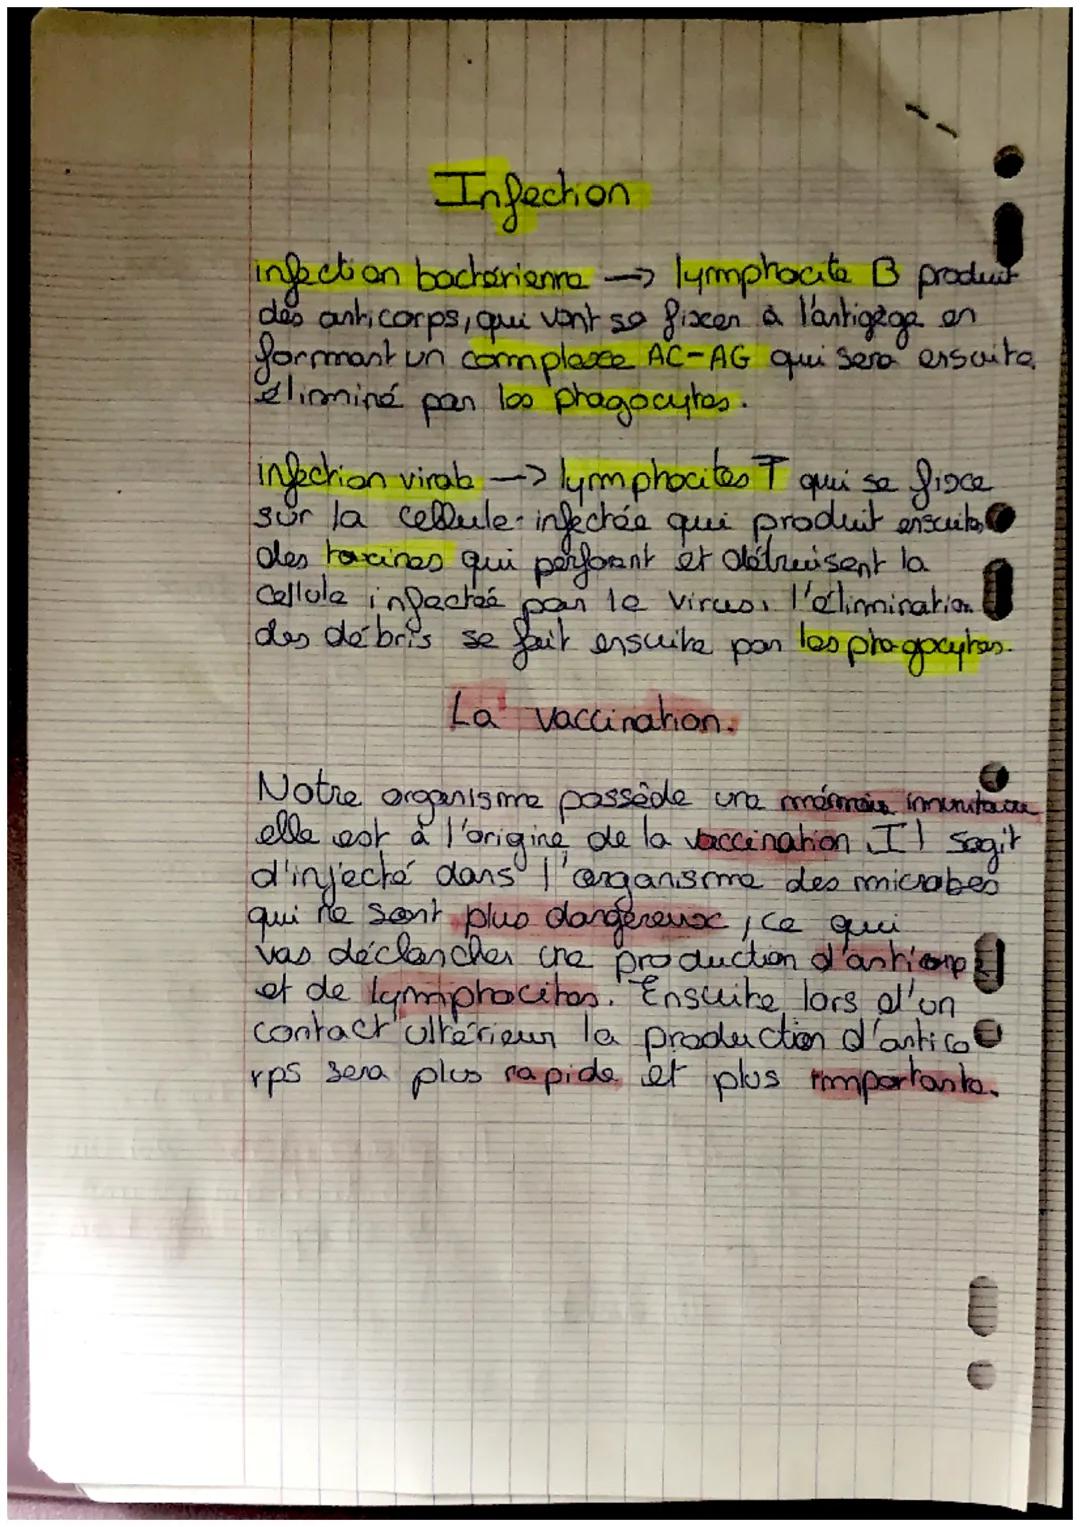 Infection
infection bactérienne -> lymphocite B produit
des anticorps, qui vont se fixer à l'antigège en
formant un complexe AC-AG qui sera ensuite
éliminé par les phagocytes.
infection virale -> lymphocites T qui se fixe
sur la cellule infectée qui produit ensuite
des toxines qui perforent et détruisent la
cellule infectée par le virus. l'élimination
des débris se fait ensuite par les phagocytes.
La vaccination.
Notre organisme possède une mémoire imunitaire
elle est à l'origine de la vaccination Il sagit
d'injecté dans l'organisme des microbes
qui ne sont plus dangereux, ce qui
vas déclancher une production d'anticorps
et de lymphocites. Ensuite lors d'un
contact ultérieur la production d'antico
rps sera plus rapide et plus importante.